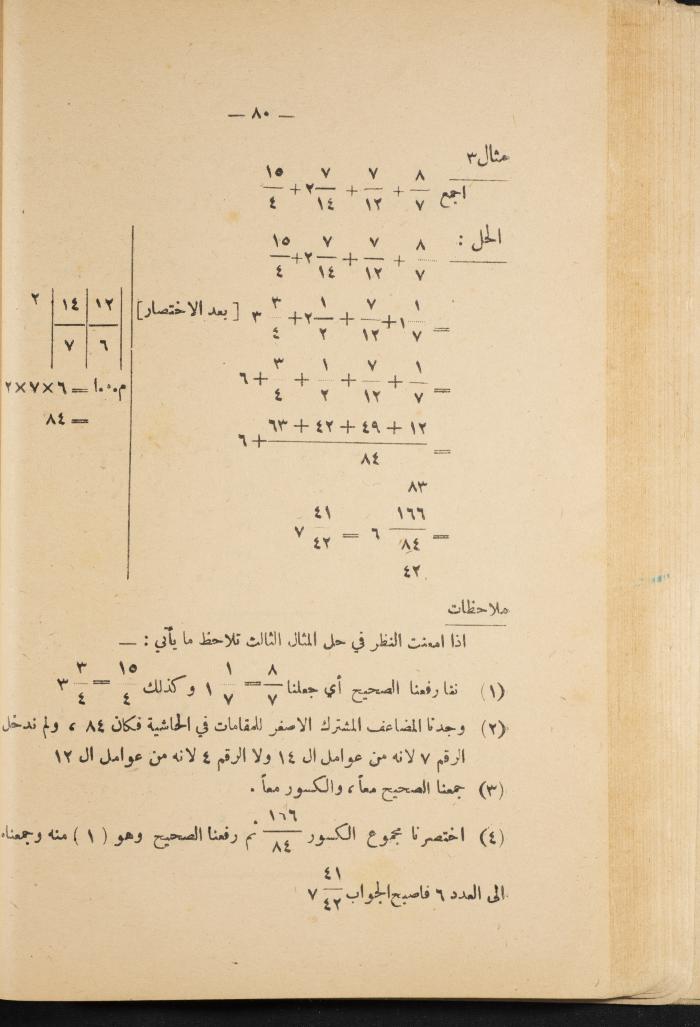 — ٨٠ —
مثال ٣
اجمع ٨/٧ + ٧/١٢ + ٢ ٧/١٤ + ١٥/٤
الحل :
٨/٧ + ٧/١٢ + ٢ ٧/١٤ + ١٥/٤
= ١ ١/٧ + ٧/١٢ + ٢ ١/٢ + ٣ ٣/٤ [ بعد الاختصار ]
= ١/٧ + ٧/١٢ + ١/٢ + ٣/٤ + ٦
= (١٢ + ٤٩ + ٤٢ + ٦٣)/٨٤ + ٦
٨٣
= ١٦٦/٨٤ ٦ = ٧ ٤١/٤٢
٤٢
١٢ | ١٤ | ٢
٦ | ٧
= ٦×٧×٢
= ٨٤
ملاحظات
اذا امعنت النظر في حل المثال الثالث تلاحظ ما يأتي : —
(١) رفعنا الصحيح أي جعلنا ٨/٧ = ١ ١/٧ وكذلك ١٥/٤ = ٣ ٣/٤
(٢) وجدنا المضاعف المشترك الاصغر للمقامات في الحاشية فكان ٨٤ ، ولم ندخل
الرقم ٧ لانه من عوامل ال ١٤ ولا الرقم ٤ لانه من عوامل ال ١٢
(٣) جمعنا الصحيح معاً ، والكسور معاً .
(٤) اختصرنا مجموع الكسور ١٦٦/٨٤ ثم رفعنا الصحيح وهو ( ١ ) منه وجمعناه
الى العدد ٦ فاصبح الجواب ٧ ٤١/٤٢